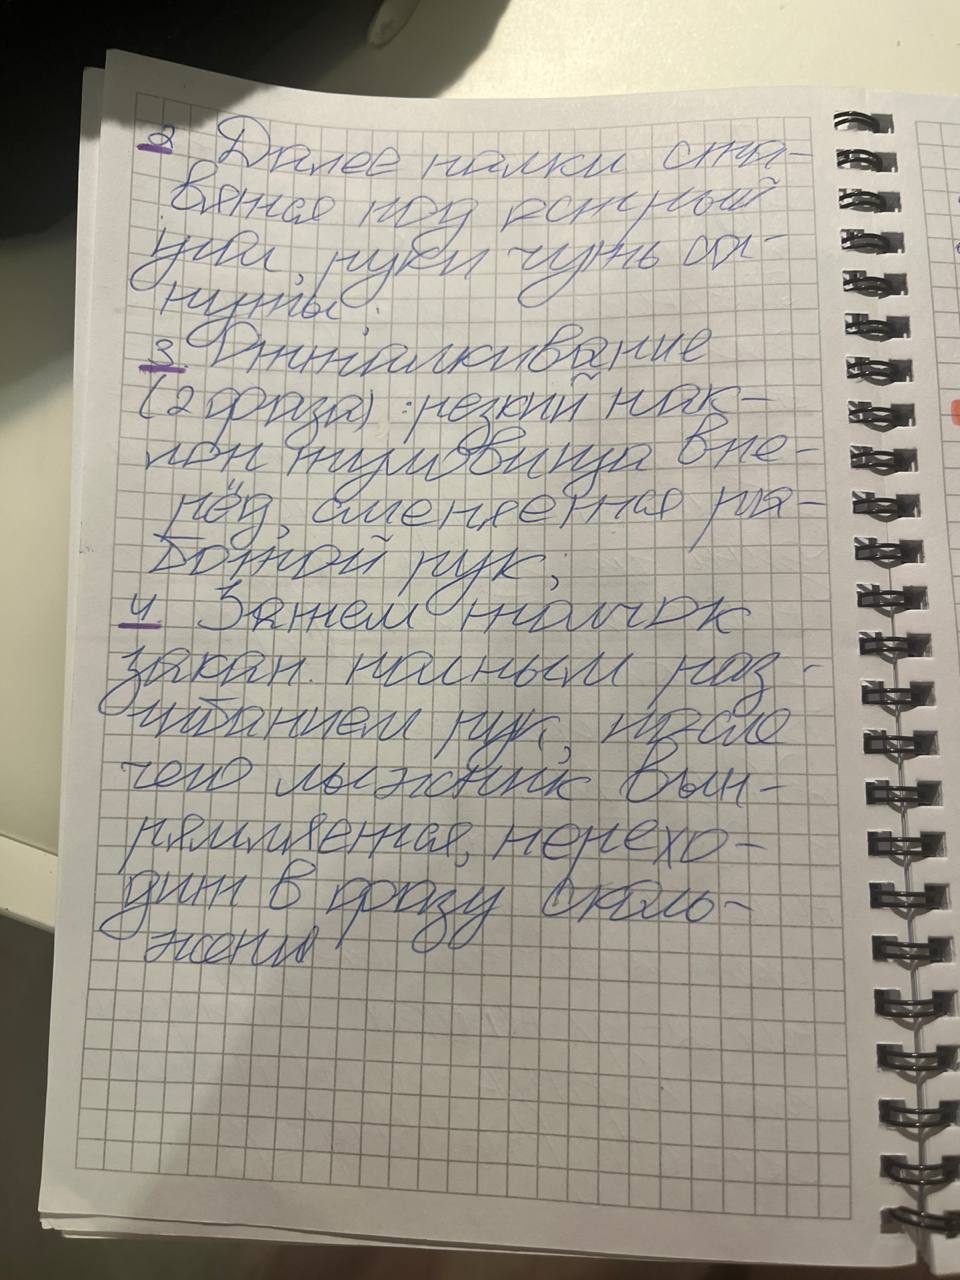 2 Далее палки ста-
вятся под острый
угол, руки чуть сог-
нуты.
3 Отталкивание
(2 фаза): резкий нак-
лон туловища впе-
рёд, сменяется ра-
ботой рук;
4 Затем толчок
закан. полным раз-
гибанием рук, после
чего лыжник вып-
рямляется, перехо-
дит в фазу сколь-
жения